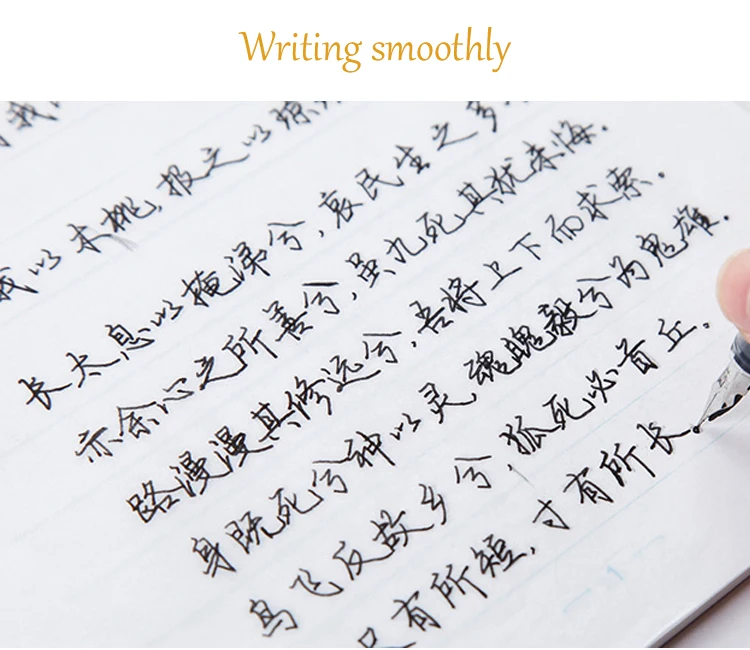 Writing smoothly
我
我以木桃,报之以琼
长太息以掩涕兮,哀民生之多
亦余心之所善兮,虽九死其犹未悔.
路漫漫其修远兮,吾将上下而求索.
身既死兮神以灵,魂魄毅兮为鬼雄.
鸟飞反故乡兮,狐死必首丘。
有所短,寸有所长